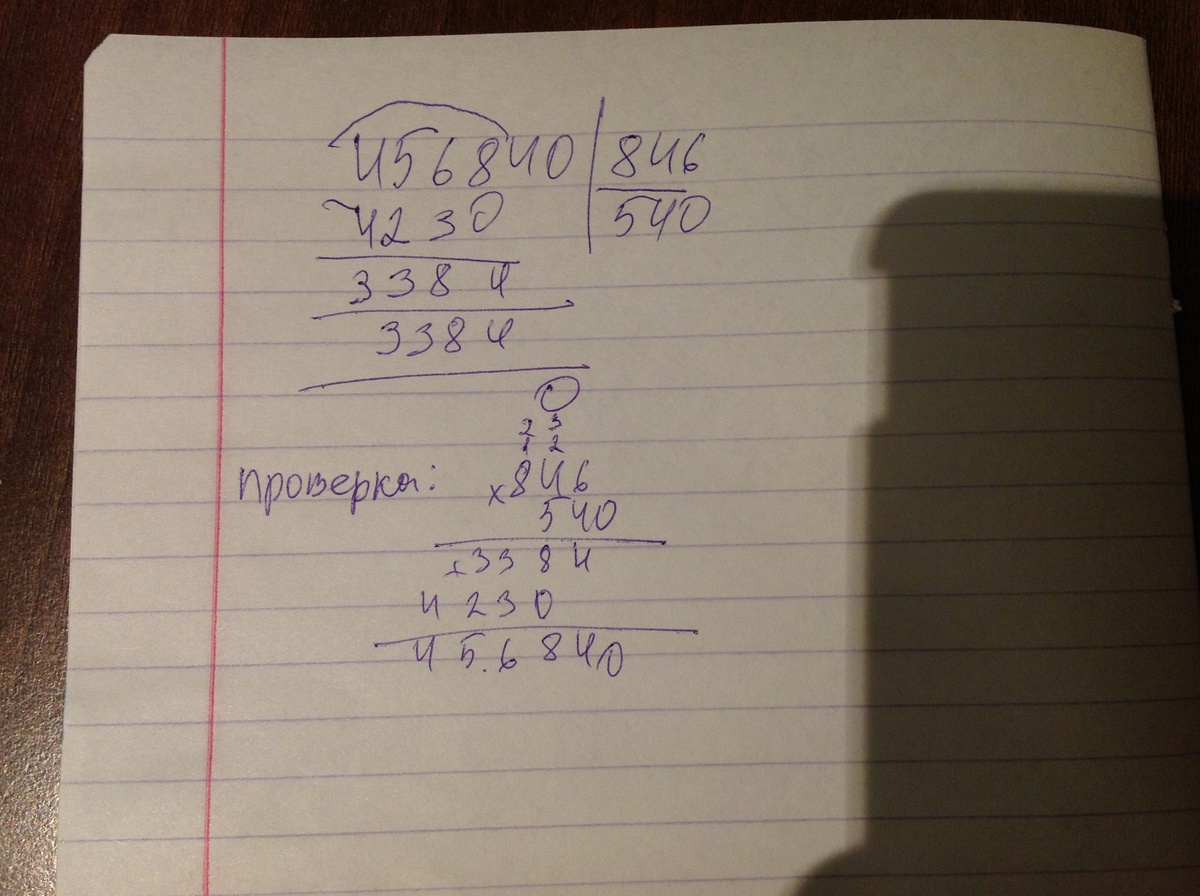 456840 | 846
4230 540
3384
3384
0
2 3
1 2
проверка: x 846
540
+ 3384
4230
456840